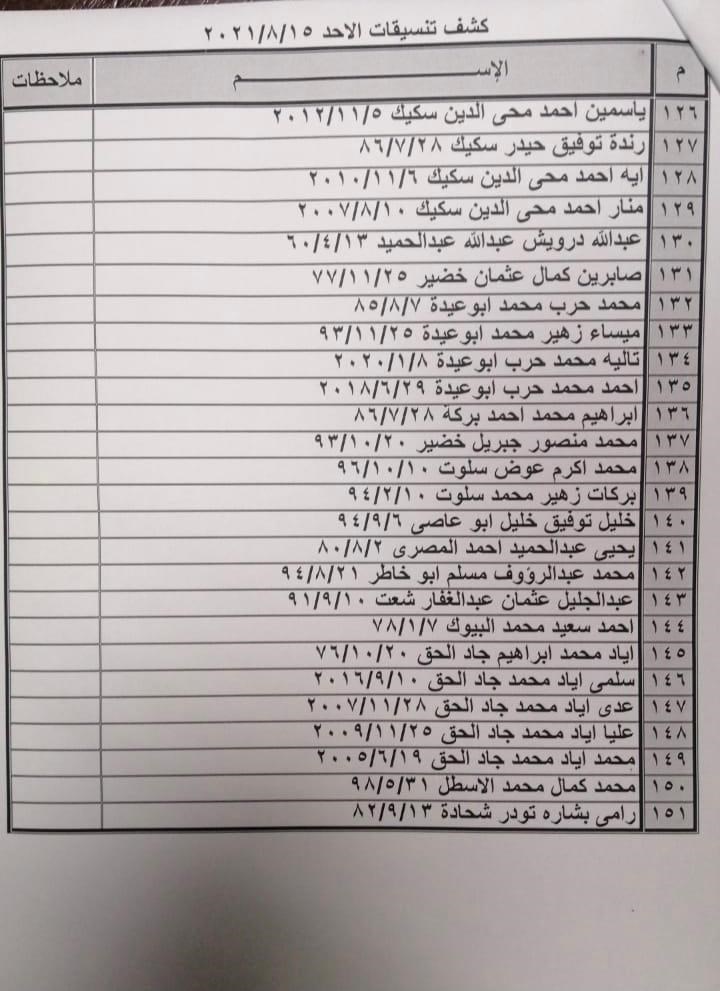 كشف تنسيقات الاحد ٢٠٢١/٨/١٥
م الإســــــم ملاحظات
١٢٦ ياسمين احمد محى الدين سكيك ٢٠١٢/١١/٥
١٢٧ رندة توفيق حيدر سكيك ٨٦/٧/٢٨
١٢٨ ايه احمد محى الدين سكيك ٢٠١٠/١١/٦
١٢٩ منار احمد محى الدين سكيك ٢٠٠٧/٨/١٠
١٣٠ عبدالله درويش عبدالله عبدالحميد ٦٠/٤/١٣
١٣١ صابرين كمال عثمان خضير ٧٧/١١/٢٥
١٣٢ محمد حرب محمد ابوعيدة ٨٥/٨/٧
١٣٣ ميساء زهير محمد ابوعيدة ٩٣/١١/٢٥
١٣٤ تاليه محمد حرب ابوعيدة ٢٠٢٠/١/٨
١٣٥ احمد محمد حرب ابوعيدة ٢٠١٨/٦/٢٩
١٣٦ ابراهيم محمد احمد بركة ٨٦/٧/٢٨
١٣٧ محمد منصور جبريل خضير ٩٣/١٠/٢٠
١٣٨ محمد اكرم عوض سلوت ٩٦/١٠/١٠
١٣٩ بركات زهير محمد سلوت ٩٤/٢/١٠
١٤٠ خليل توفيق خليل ابو عاصى ٩٤/٩/٦
١٤١ يحيى عبدالحميد احمد المصرى ٨٠/٨/٢
١٤٢ محمد عبدالرؤوف مسلم ابو خاطر ٩٤/٨/٢١
١٤٣ عبدالجليل عثمان عبدالغفار شعت ٩١/٩/١٠
١٤٤ احمد سعيد محمد البيوك ٧٨/١/٧
١٤٥ اياد محمد ابراهيم جاد الحق ٧٦/١٠/٢٠
١٤٦ سلمى اياد محمد جاد الحق ٢٠١٦/٩/١٠
١٤٧ عدى اياد محمد جاد الحق ٢٠٠٧/١١/٢٨
١٤٨ عليا اياد محمد جاد الحق ٢٠٠٩/١١/٢٥
١٤٩ محمد اياد محمد جاد الحق ٢٠٠٥/٦/١٩
١٥٠ محمد كمال محمد الاسطل ٩٨/٥/٣١
١٥١ رامى بشاره تودر شحادة ٨٢/٩/١٣